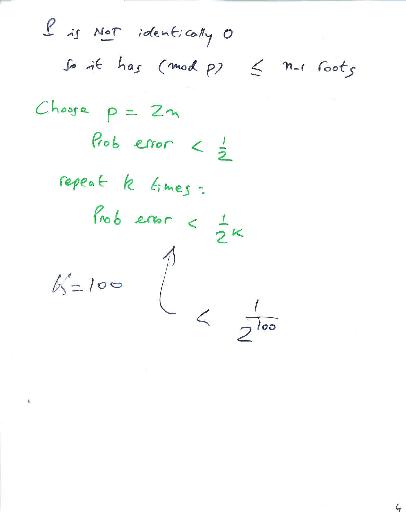 P is NOT identically 0
So it has (mod p) ≤ n-1 roots
Choose p = 2n
Prob error < 1/2
repeat k times:
Prob error < 1/2^k
K=100
< 1/2^100
4